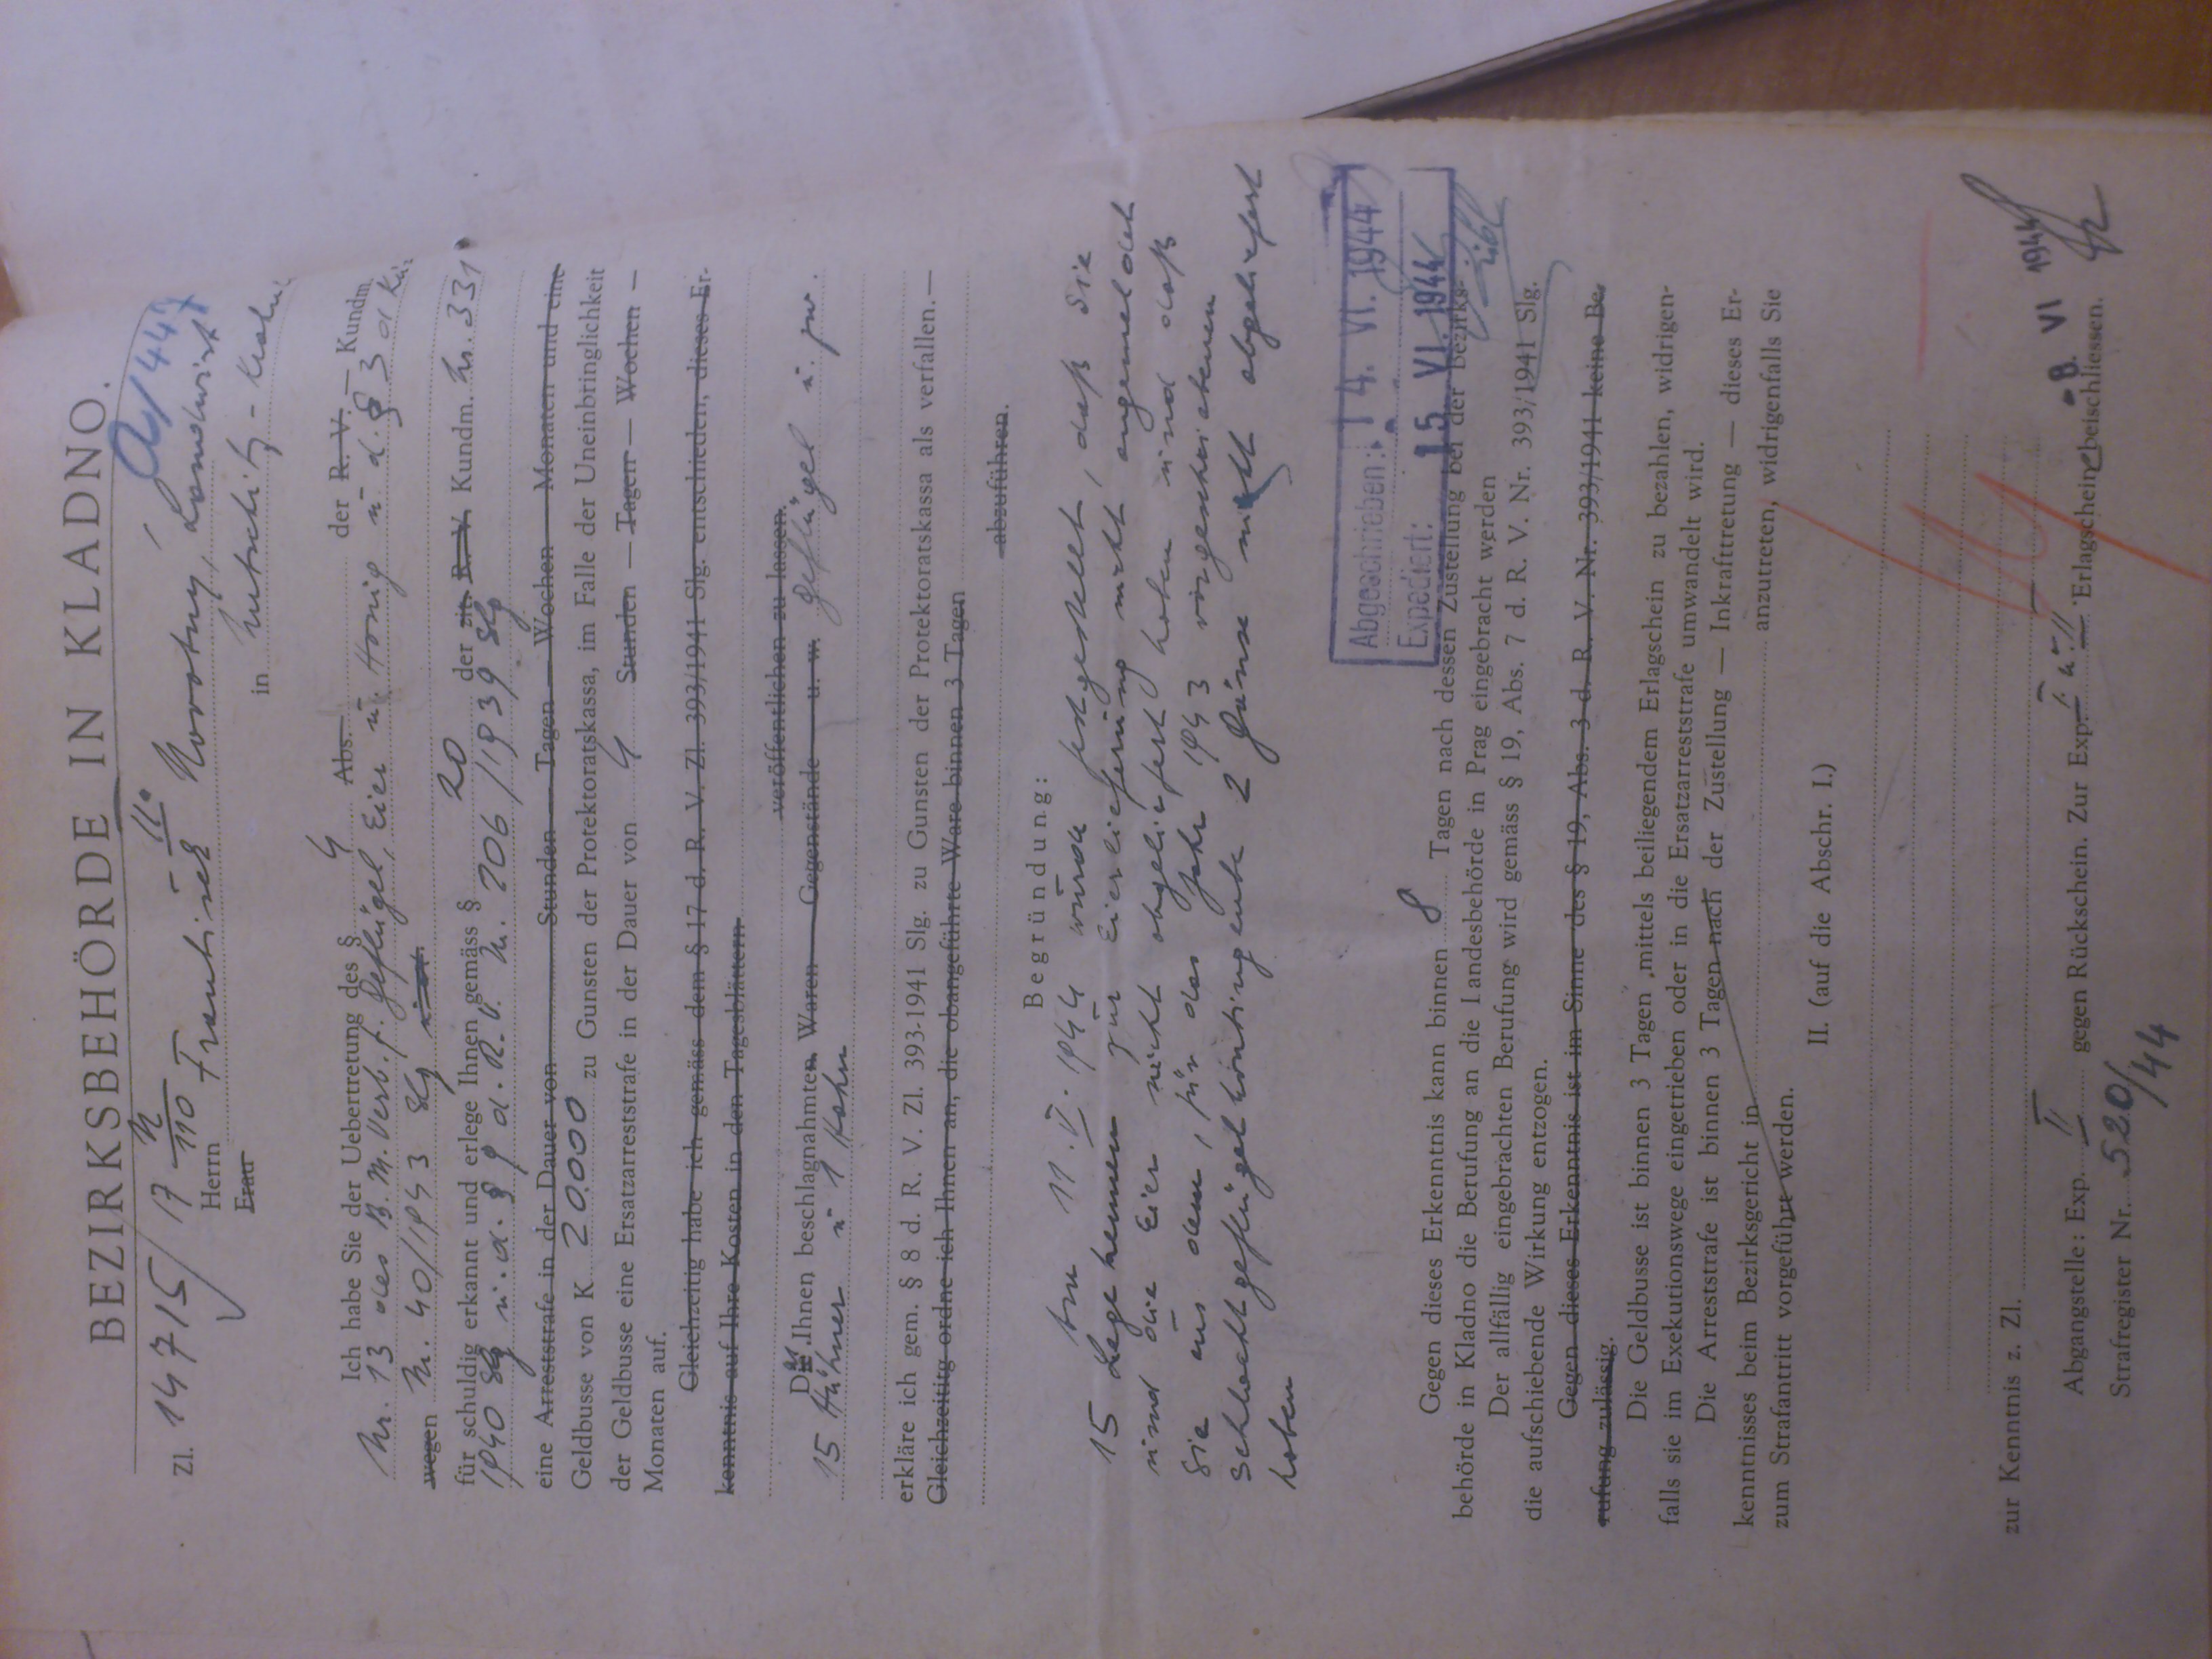 BEZIRKSBEHÖRDE IN KLADNO.
a/44
Zl. 14715/ 17 N/110 II.
Herrn František Novotný, Landwirt
Frau
in
Ich habe Sie der Uebertretung des § 4 Abs. der R. V. — Kundm.
Nr. 13 des B. M. Verb. f. Geflügel, Eier u. Honig u. d. § 3 d
wegen Nr. 40/1943 Slg
für schuldig erkannt und erlege Ihnen gemäss § 20 der zit. R. V. Kundm. Nr. 331
1940 Slg u. d. § 9 d. R. V. Nr. 206/1939 Slg
eine Arreststrafe in der Dauer von Stunden — Tagen — Wochen Monaten und eine
Geldbusse von K 20.000 zu Gunsten der Protektoratskassa, im Falle der Uneinbringlichkeit
der Geldbusse eine Ersatzarreststrafe in der Dauer von 4 Stunden — Tagen — Wochen —
Monaten auf.
Gleichzeitig habe ich gemäss dem § 17 d. R. V. Zl. 393/1941 Slg. entschieden, dieses Er-
kenntnis auf Ihre Kosten in den Tagesblättern
veröffentlichen zu lassen.
Das Ihnen beschlagnahmten Waren Gegenstände u. w. Geflügel u. zw.
15 Hühner u 1 Hahn
erkläre ich gem. § 8 d. R. V. Zl. 393-1941 Slg. zu Gunsten der Protektoratskassa als verfallen.—
Gleichzeititg ordne ich Ihnen an, die obangeführte Ware binnen 3 Tagen
abzuführen.
Begründung:
Am 11. V. 1944 wurde festgestellt, daß Sie
15 Legehennen zur Eierlieferung nicht angemeldet
und die Eier nicht abgeliefert haben und daß
Sie aus dem, für das Jahr 1943 vorgeschriebenen
Schlachtgeflügelkontingente 2 Gänse nicht abgeliefert
haben
Abgeschrieben: 14. VI. 1944
Expediert: 15 VI. 1944
Gegen dieses Erkenntnis kann binnen 8 Tagen nach dessen Zustellung bei der Bezirks-
behörde in Kladno die Berufung an die Landesbehörde in Prag eingebracht werden
Der allfällig eingebrachten Berufung wird gemäss § 19, Abs. 7 d. R. V. Nr. 393/1941 Slg.
die aufschiebende Wirkung entzogen.
Gegen dieses Erkenntnis ist im Sinne des § 19, Abs. 3 d. R. V. Nr. 393/1941 keine Be-
rufung zulässig.
Die Geldbusse ist binnen 3 Tagen mittels beiliegendem Erlagschein zu bezahlen, widrigen-
falls sie im Exekutionswege eingetrieben oder in die Ersatzarreststrafe umwandelt wird.
Die Arreststrafe ist binnen 3 Tagen nach der Zustellung — Inkrafttretung — dieses Er-
kenntnisses beim Bezirksgericht in anzutreten, widrigenfalls Sie
zum Strafantritt vorgeführt werden.
II. (auf die Abschr. I.)
zur Kenntnis z. Zl.
-8. VI 1944
Abgangstelle: Exp. II gegen Rückschein. Zur Exp. I. u. II Erlagscheine beischliessen.
Strafregister Nr. 520/44